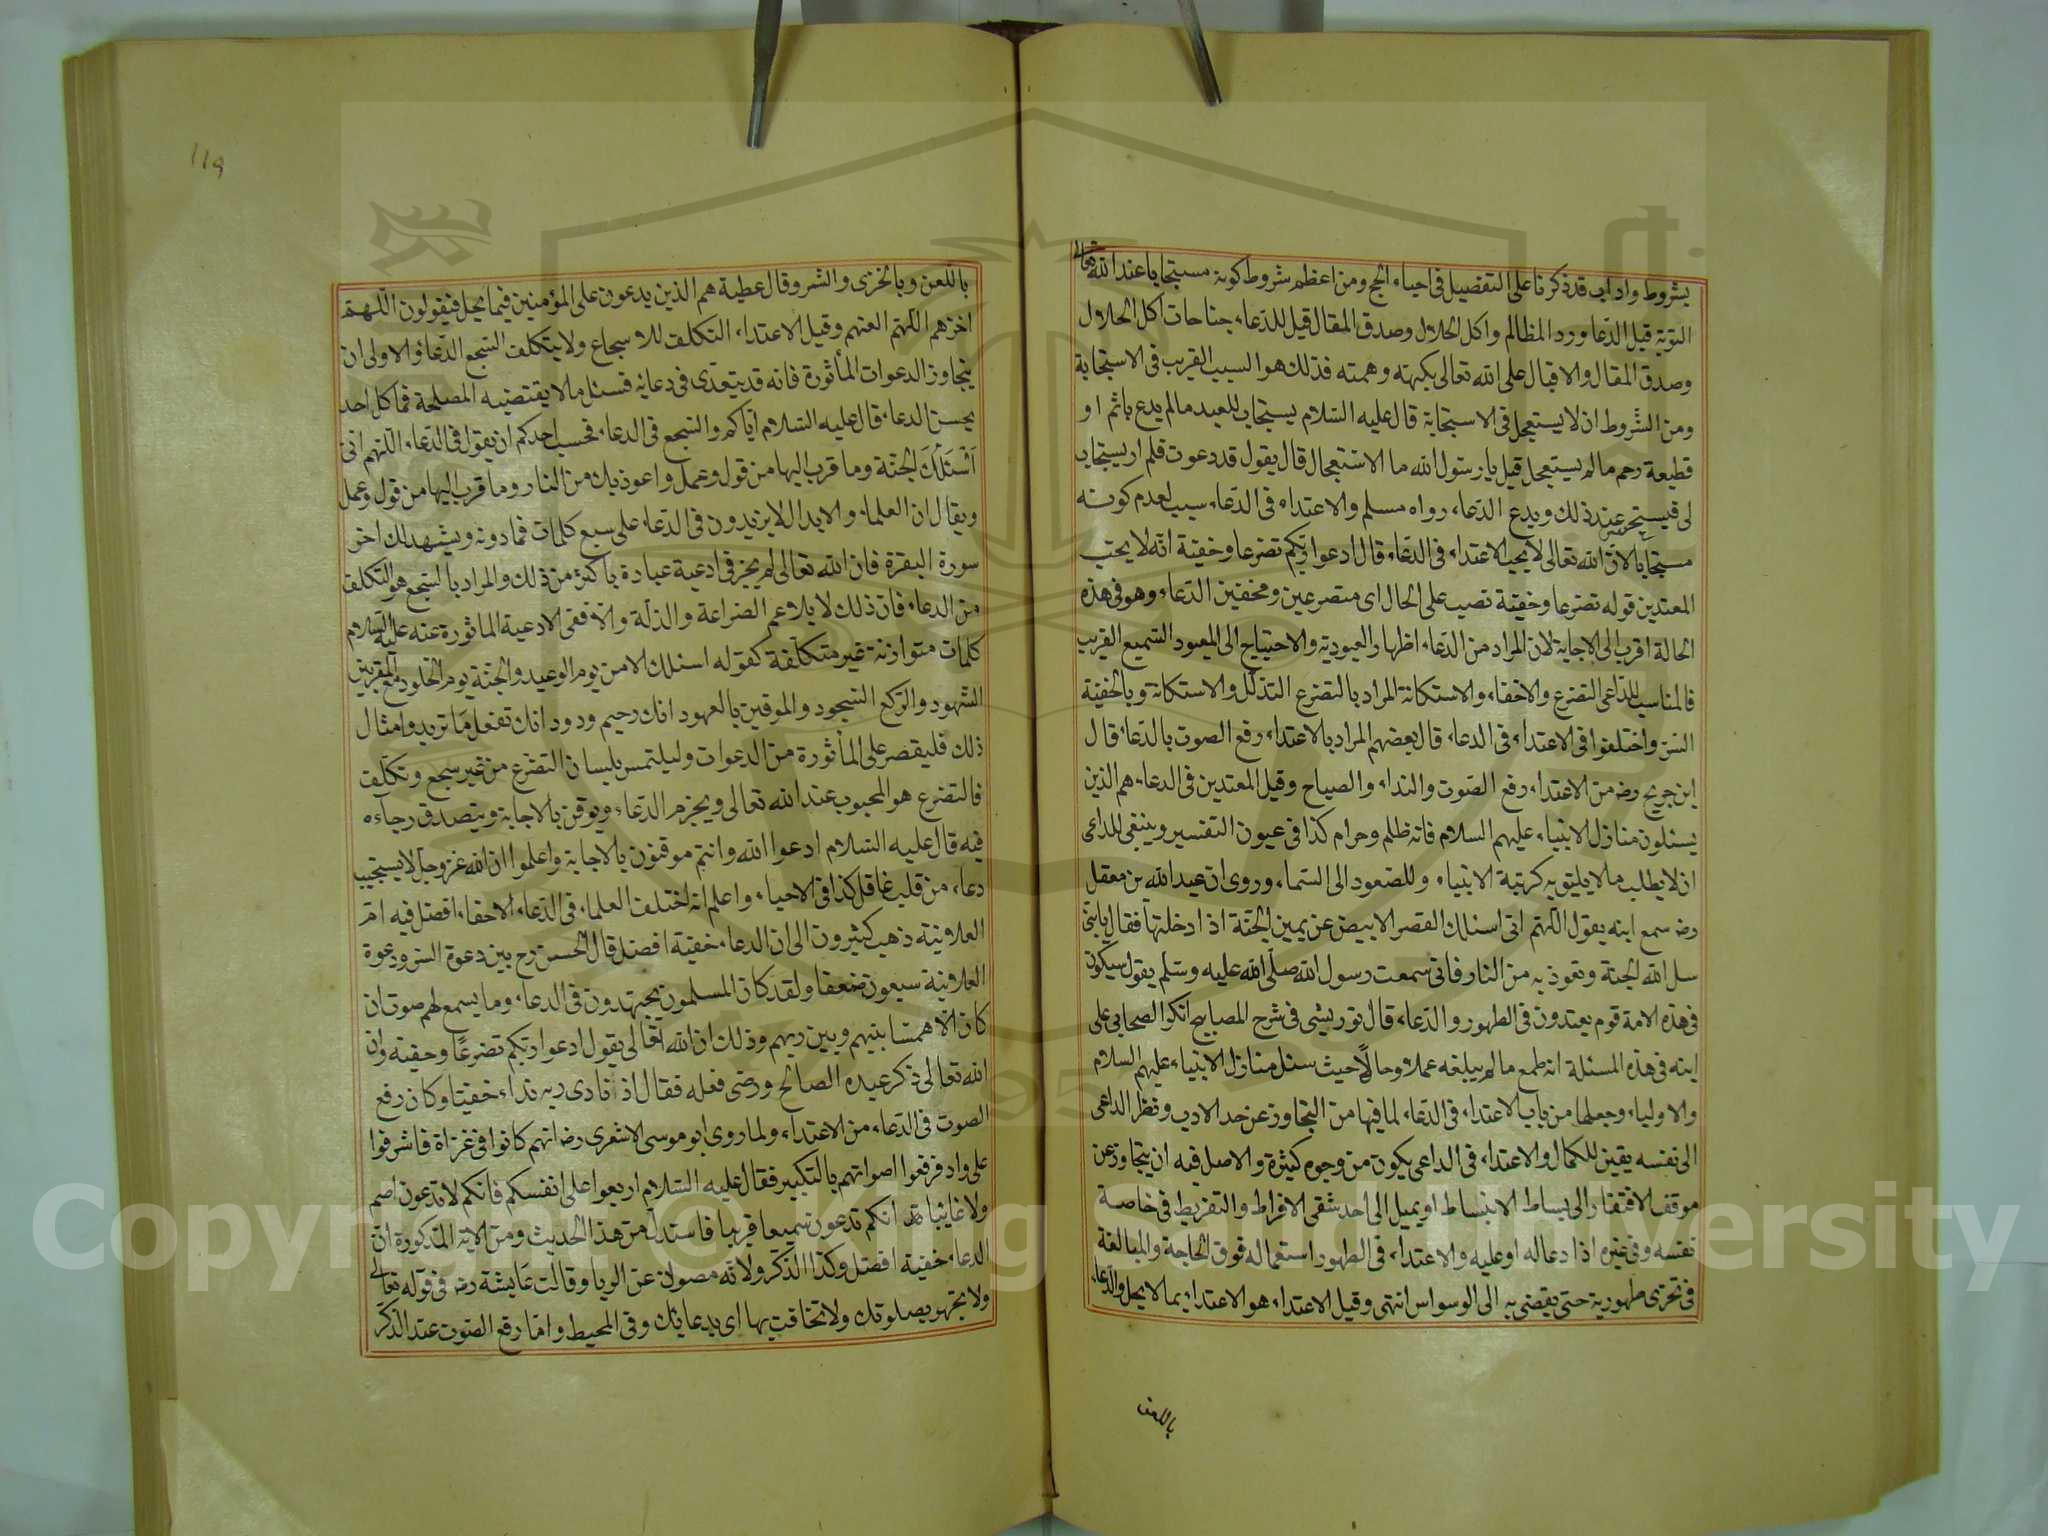 بشروط واداب قد ذكرنا على التفصيل فى احياء الحج ومن اعظم شروط كونه مستجابا عند الله تعالى
التوبة قبل الدعاء ورد المظالم واكل الحلال وصدق المقال قيل للدعاء جناحات اكل الحلال
وصدق المقال والاقبال على الله تعالى بكنهته وهمته فذلك هو السبب القريب فى الاستجابة
ومن الشروط ان لا يستعجل فى الاستجابة قال عليه السلام يستجاب للعبد مالم يدع باثم او
قطيعة رحم مالم يستعجل قيل يا رسول الله ما الاستعجال قال يقول قد دعوت فلم ار يستجاب
لى فيستحسر عند ذلك ويدع الدعاء رواه مسلم والاعتداء فى الدعاء سبب لعدم كونه
مستجابا لان الله تعالى لا يحب الاعتداء فى الدعاء قال ادعوا ربكم تضرعا وخفية انه لا يحب
المعتدين قوله تضرعا وخفية نصب على الحال اى متضرعين ومخفين الدعاء وهو فى هذه
الحالة اقرب الى الاجابة لان المراد من الدعاء اظهار العبودية والاحتياج الى المعبود السميع القريب
فالمناسب للداعى التضرع والاخفاء والاستكانة المراد بالتضرع التذلل والاستكانة وبالخفية
السر واختلفوا فى الاعتداء فى الدعاء قال بعضهم المراد بالاعتداء رفع الصوت بالدعاء قال
ابن جريج رض من الاعتداء رفع الصوت والنداء والصياح وقيل المعتدين فى الدعاء هم الذين
يسئلون منازل الانبياء عليهم السلام فانه ظلم وحرام كذا فى عيون التفسير وينبغى للداعى
ان لا يطلب ما لا يليق به كرتبة الانبياء وللصعود الى السماء وروى ان عبد الله بن معقل
رض سمع ابنه يقول اللهم انى اسئلك القصر الابيض عن يمين الجنة اذا دخلتها فقال يا بنى
سل الله الجنة وتعوذ به من النار فانى سمعت رسول الله صلى الله عليه وسلم يقول سيكون
فى هذه الامة قوم يعتدون فى الطهور والدعاء قال توربشتى فى شرح المصابيح انكر الصحابى على
ابنه فى هذه المسئلة انه طمع مالم يبلغه عملا وحالا حيث سئل منازل الانبياء عليهم السلام
والاولياء وجعلها من باب الاعتداء فى الدعاء لما فيها من التجاوز عن حد الادب ونظر الداعى
الى نفسه بعين الكمال والاعتداء فى الداعى يكون من وجوه كثيرة والاصل فيه ان يتجاوز عن
موقف الافتقار الى بساط الانبساط او يميل الى احد شقى الافراط والتفريط فى خاصة
نفسه وفى غيره اذا دعا له او عليه والاعتداء فى الطهور استعماله فوق الحاجة والمبالغة
فى تحرى طهورية حتى يفضى به الى الوسواس انتهى وقيل الاعتداء هو الاعتداء بما لا يحل والدعاء
باللعن
119
باللعن وبالخزى والشر وقال عطية هم الذين يدعون على المؤمنين فيما يحل فيقولون اللهم
اخزهم اللهم العنهم وقيل الاعتداء التكلف للاسجاع ولا يتكلف السجع الدعاء والاولى ان
يتجاوز الدعوات المأثورة فانه قد يتعدى فى دعائه فسئل ما لا يقتضيه المصلحة فما كل احد
يحسن الدعاء قال عليه السلام اياكم والسجع فى الدعاء فحسب احدكم ان يقول فى الدعاء اللهم انى
اسئلك الجنة وما قرب اليها من قول وعمل واعوذ بك من النار وما قرب اليها من قول وعمل
ويقال ان العلماء والابدال لا يزيدون فى الدعاء على سبع كلمات فمادونه ويشهد لك اخر
سورة البقرة فان الله تعالى لم يخبر فى ادعية عباده باكثر من ذلك والمراد بالسجع هو التكلف
من الدعاء فان ذلك لا يلاعم الضراعة والذلة والا ففى الادعية الماثورة عنه عليه السلام
كلمات متوازنة غير متكلفة كقوله اسئلك الامن يوم الوعيد والجنة يوم الخلود مع المقربين
الشهود والركع السجود والموفين بالعهود انك رحيم ودود انك تفعل ما تريد وامثال
ذلك فليقصر على المأثورة من الدعوات وليلتمس بلسان التضرع من غير سجع وتكلف
فالتضرع هو المحبوب عند الله تعالى ويجزم الدعاء ويوقن بالاجابة ويتصدق رجاءه
فيه قال عليه السلام ادعوا الله وانتم موقنون بالاجابة واعلموا ان الله عز وجل لا يستجيب
دعاء من قلب غافل كذا فى الاحياء واعلم انه اختلف العلماء فى الدعاء الاخفاء افضل فيه ام
العلانية ذهب كثيرون الى ان الدعاء خفية افضل قال الحسن رح بين دعوة السر ودعوة
العلانية سبعون ضعفا ولقد كان المسلمون يجتهدون فى الدعاء وما يسمع لهم صوت ان
كان الا همسا بينهم وبين ربهم وذلك ان الله تعالى يقول ادعوا ربكم تضرعا وخفية وان
الله تعالى ذكر عبده الصالح ورضى فعله فقال اذ نادى ربه نداء خفيا وكان رفع
الصوت فى الدعاء من الاعتداء ولما روى ابو موسى الاشعرى رض انهم كانوا فى غزاة فاشرفوا
على واد فرفعوا اصواتهم بالتكبير فقال عليه السلام اربعوا على انفسكم فانكم لا تدعون اصم
ولا غائبا انكم تدعون سميعا قريبا فاستدل من هذا الحديث ومن الاية المذكورة ان
الدعاء خفية افضل وكذا الذكر ولانه مصون عن الريا وقالت عايشة رض فى قوله تعالى
ولا تجهر بصلوتك ولا تخافت بها اى بدعائك وفى المحيط واما رفع الصوت عند الذكر
Copyright © King Saud University